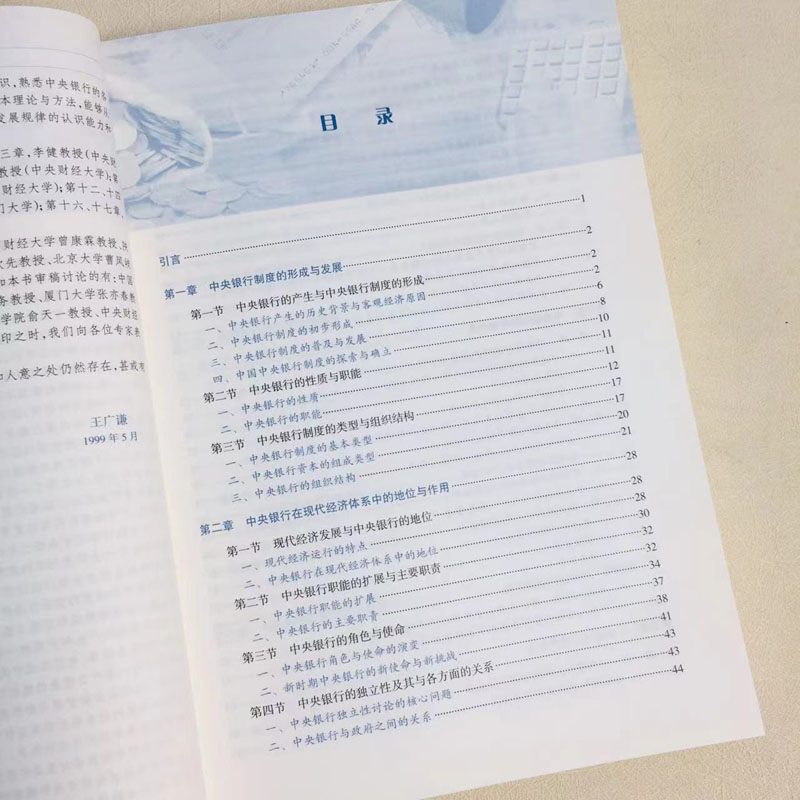 识，熟悉中央银行的各
本理论与方法，能够从
发展规律的认识能力和
三章，李健教授（中央财
教授（中央财经大学）；第
财经大学）；第十二、十四
门大学）；第十六、十七章，
财经大学曾康霖教授、
次先教授、北京大学曹凤岐
加本书审稿讨论的有：中国
务教授、厦门大学张亦春教
学院俞天一教授、中央财经
印之时，我们向各位专家教
如人意之处仍然存在，甚或有
王广谦
1999年5月
目 录
引言 1
第一章 中央银行制度的形成与发展 2
第一节 中央银行的产生与中央银行制度的形成 2
一、中央银行产生的历史背景与客观经济原因 2
二、中央银行制度的初步形成 6
三、中央银行制度的普及与发展 8
四、中国中央银行制度的探索与确立 10
第二节 中央银行的性质与职能 11
一、中央银行的性质 11
二、中央银行的职能 12
第三节 中央银行制度的类型与组织结构 17
一、中央银行制度的基本类型 17
二、中央银行资本的组成类型 20
三、中央银行的组织结构 21
第二章 中央银行在现代经济体系中的地位与作用 28
第一节 现代经济发展与中央银行的地位 28
一、现代经济运行的特点 28
二、中央银行在现代经济体系中的地位 30
第二节 中央银行职能的扩展与主要职责 32
一、中央银行职能的扩展 32
二、中央银行的主要职责 34
第三节 中央银行的角色与使命 37
一、中央银行角色与使命的演变 38
二、新时期中央银行的新使命与新挑战 41
第四节 中央银行的独立性及其与各方面的关系 43
一、中央银行独立性讨论的核心问题 43
二、中央银行与政府之间的关系 44